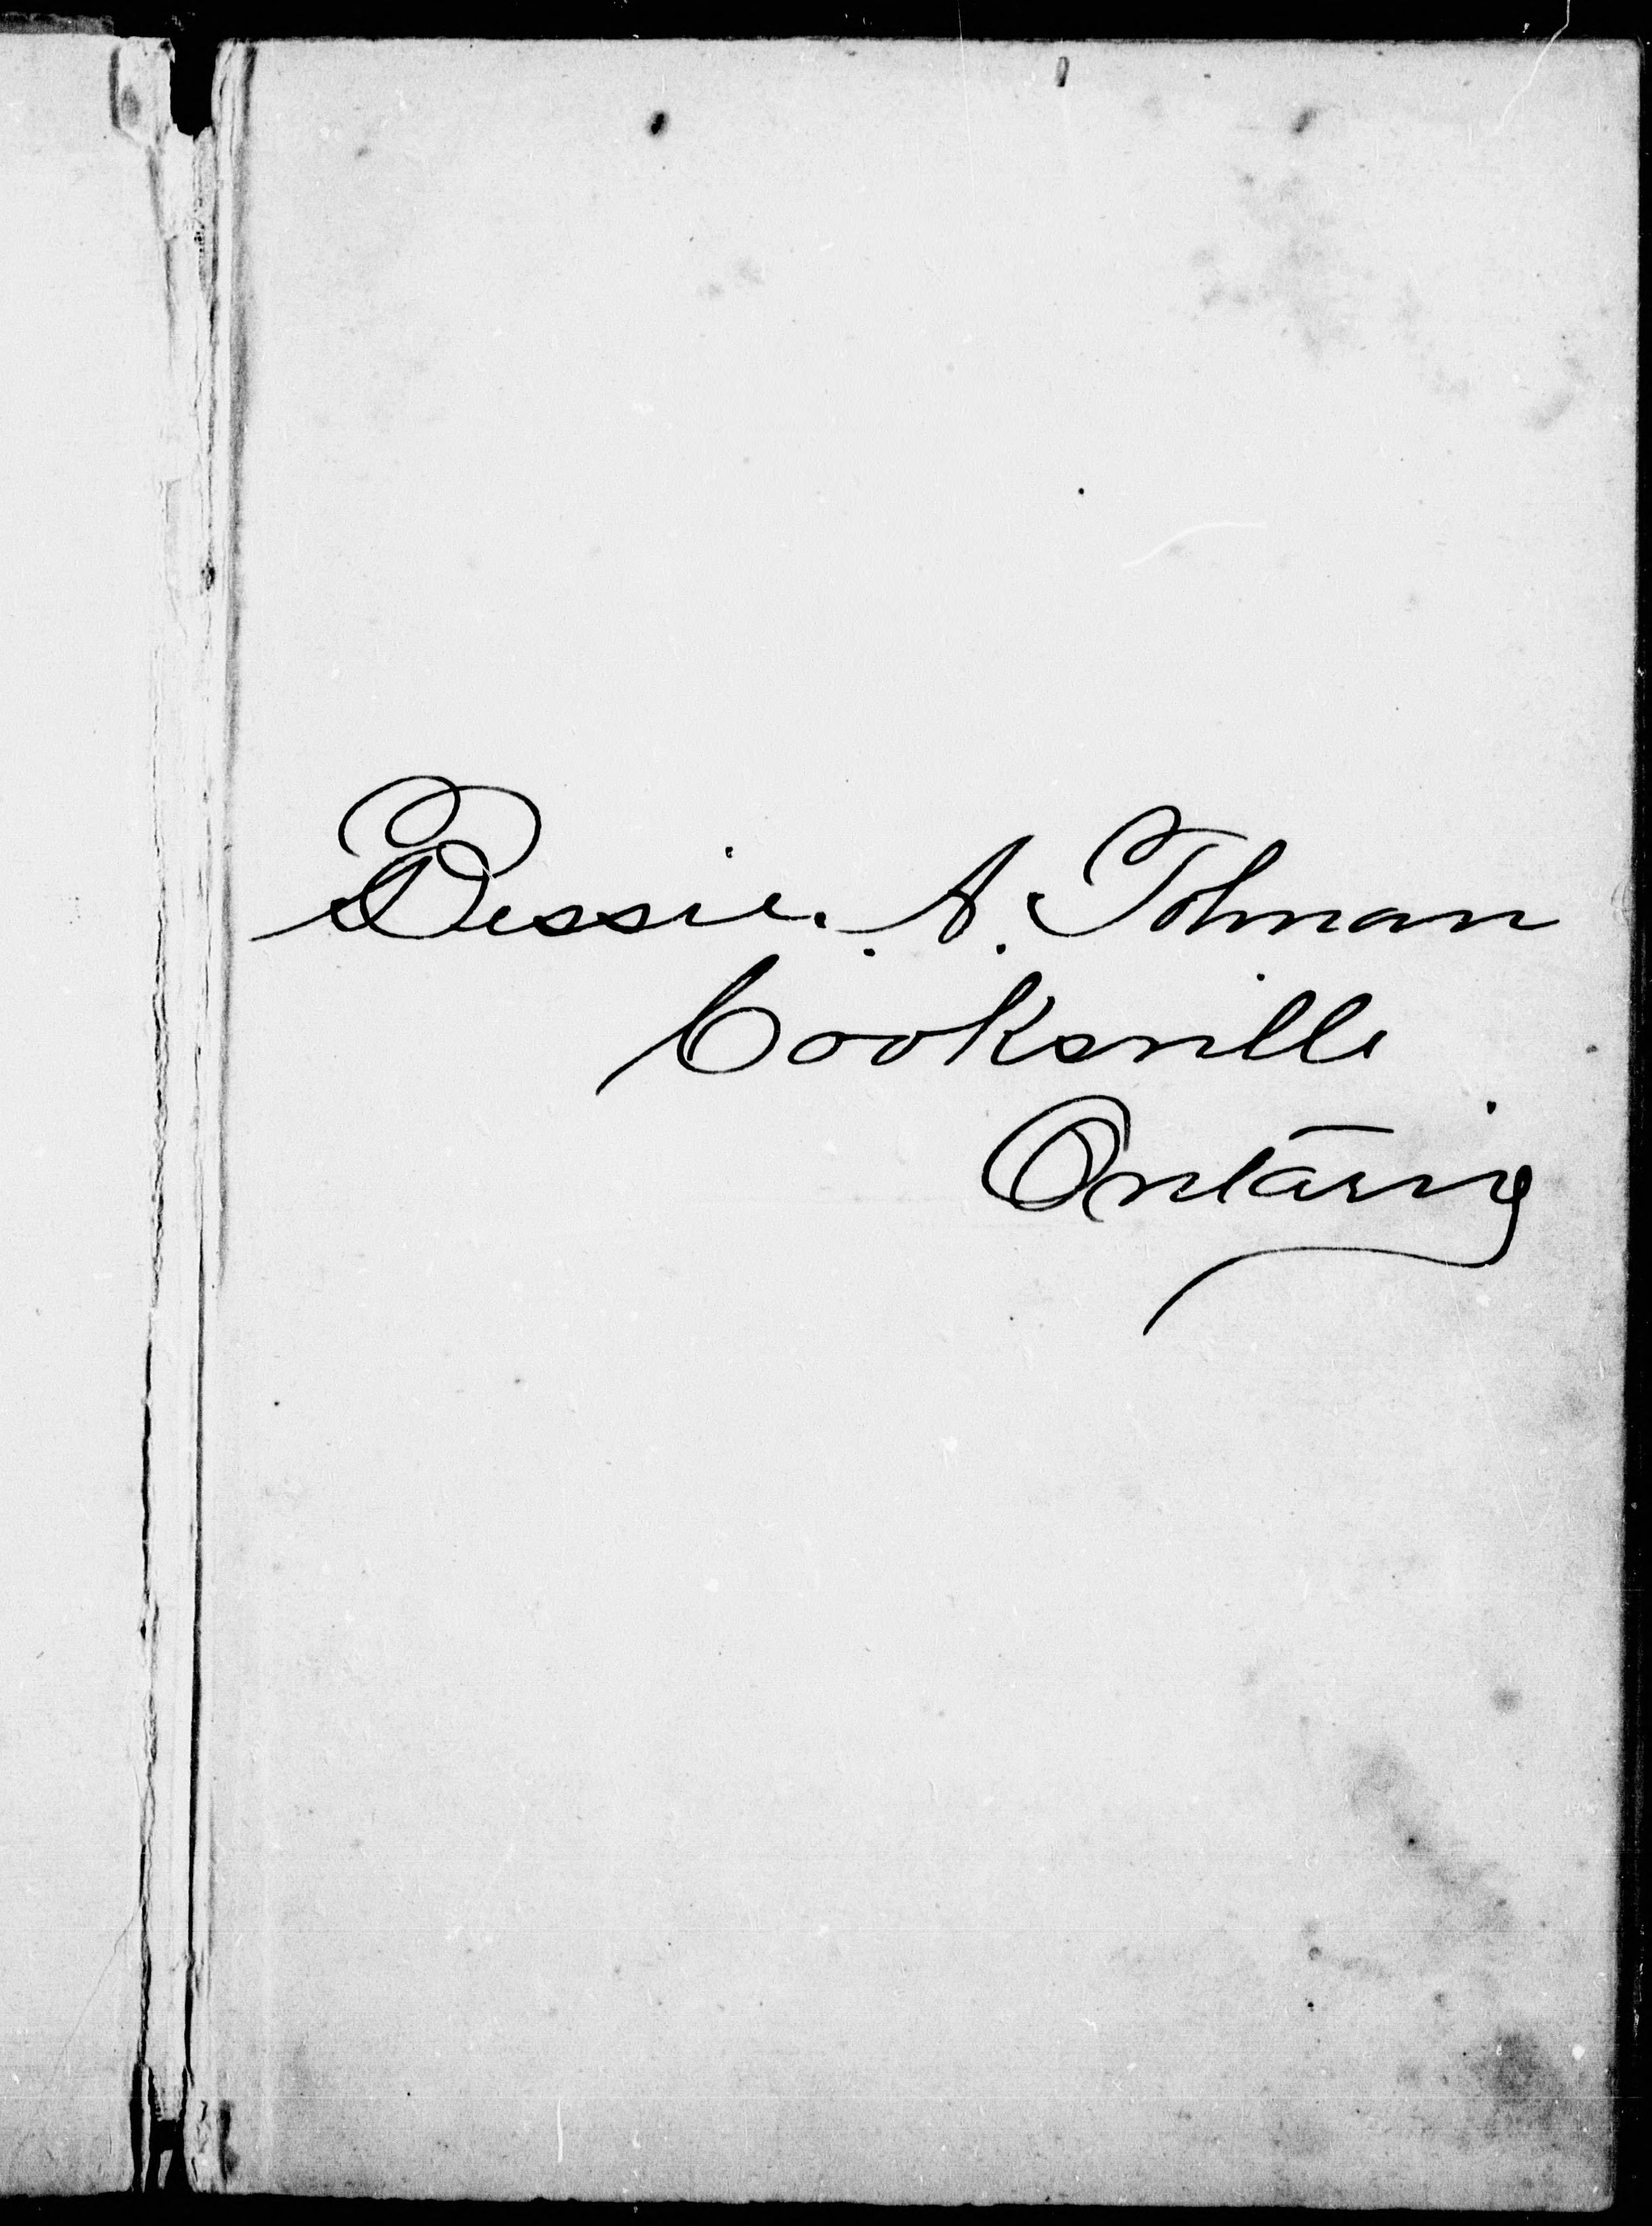 Bessie. A. Tolman
Cooksville
Ontario